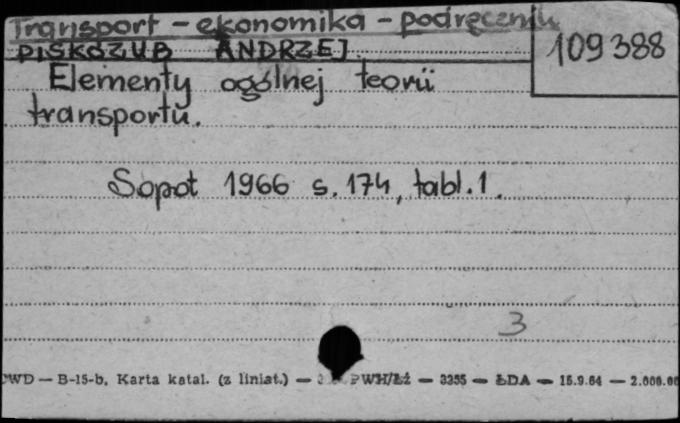 Transport - ekonomika - podręczniki
109388
PISKOZUB ANDRZEJ
Elementy ogólnej teorii
transportu.
Sopot 1966 s. 174, tabl. 1.
3
PWD — B-15-b, Karta katal. (z liniat.) — PWH/Łź — 3355 — ŁDA — 15.9.64 — 2.000.00